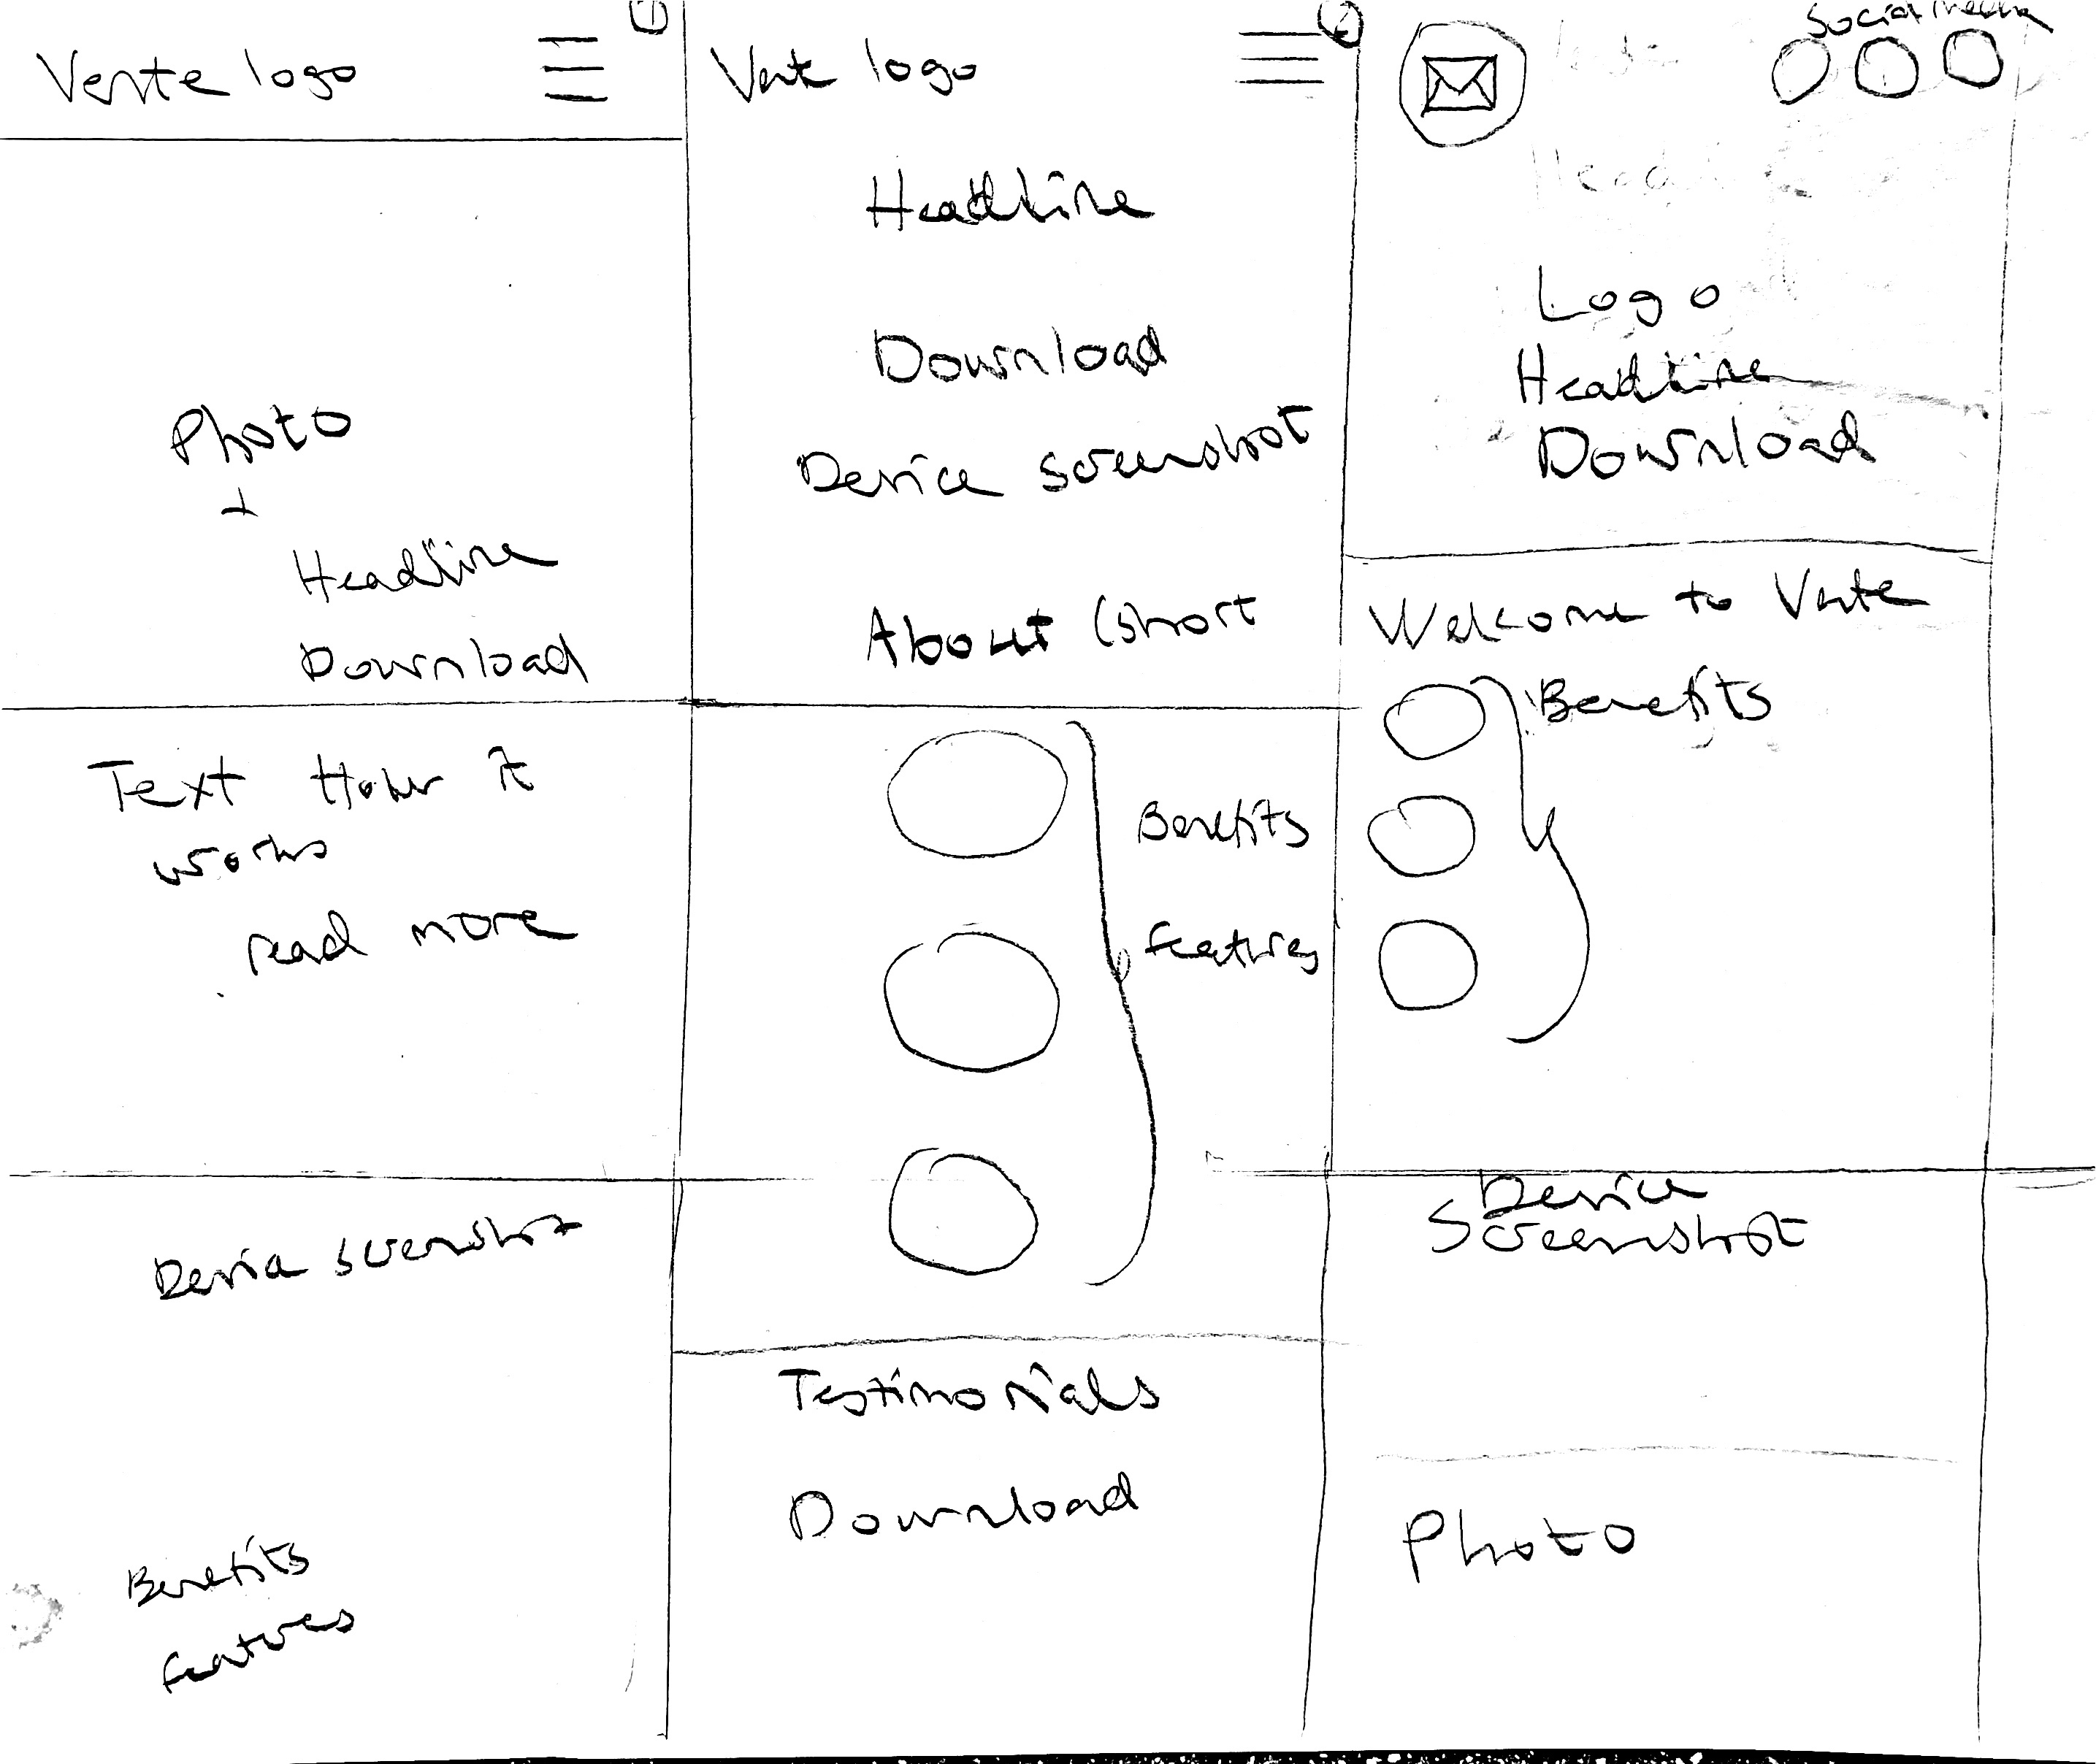 1
Verte logo
Photo
+
Headline
Download
Text How it
works
read more
Device screenshot
Benefits
features
2
Verte logo
Headline
Download
Device screenshot
About (short
Benefits
features
Testimonials
Download
Social media
Logo
Headline
Download
Welcome to Verte
Benefits
Device
Screenshot
Photo